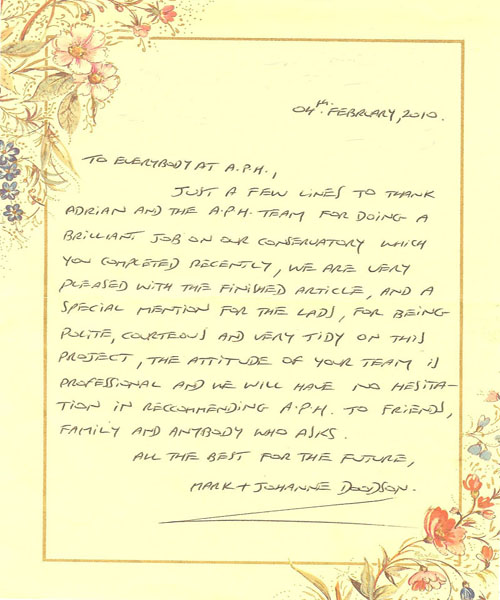 04th FEBRUARY, 2010.
TO EVERYBODY AT A.P.H.,
JUST A FEW LINES TO THANK
ADRIAN AND THE A.P.H. TEAM FOR DOING A
BRILLIANT JOB ON OUR CONSERVATORY WHICH
YOU COMPLETED RECENTLY, WE ARE VERY
PLEASED WITH THE FINISHED ARTICLE, AND A
SPECIAL MENTION FOR THE LADS, FOR BEING
POLITE, COURTEOUS AND VERY TIDY ON THIS
PROJECT, THE ATTITUDE OF YOUR TEAM IS
PROFESSIONAL AND WE WILL HAVE NO HESITA-
TION IN RECCOMMENDING A.P.H. TO FRIENDS,
FAMILY AND ANYBODY WHO ASKS.
ALL THE BEST FOR THE FUTURE,
MARK + JOHANNE DOODSON.